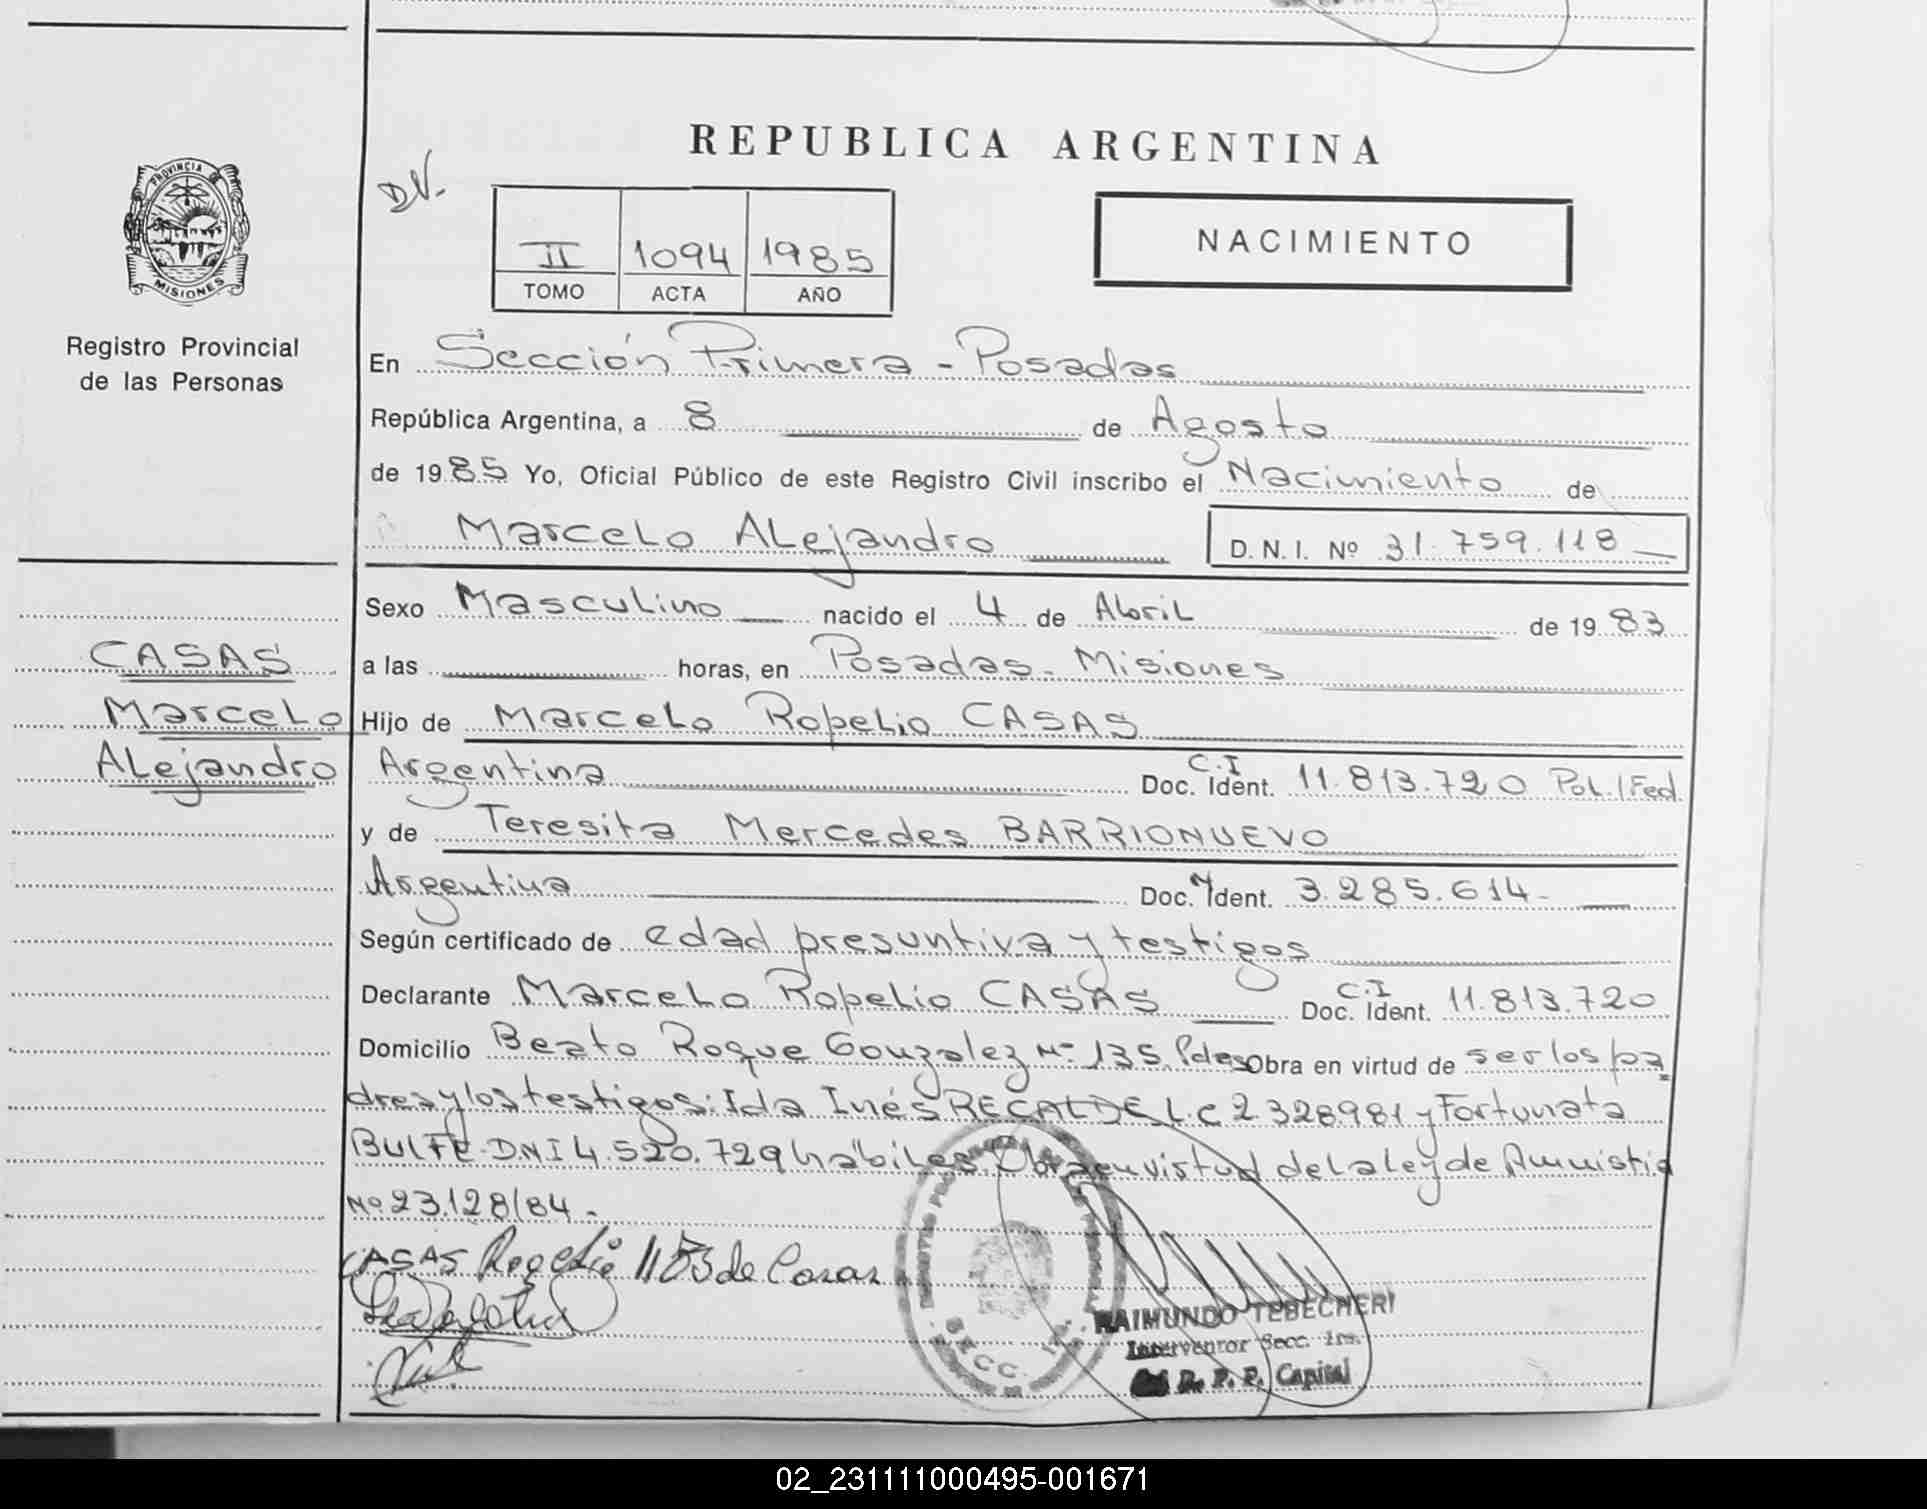 REPUBLICA ARGENTINA
DV.
II 1094 1985
TOMO ACTA AÑO
NACIMIENTO
PROVINCIA DE
MISIONES
Registro Provincial
de las Personas
En Sección Primera - Posadas
República Argentina, a 8 de Agosto
de 1985 Yo, Oficial Público de este Registro Civil inscribo el Nacimiento de
Marcelo Alejandro D.N.I. Nº 31.759.118
Sexo Masculino nacido el 4 de Abril de 1983
CASAS
Marcelo
Alejandro
a las horas, en Posadas - Misiones
Hijo de Marcelo Ropelio CASAS
Argentina Doc. Ident. C.I 11.813.720 Pol./Fed.
y de Teresita Mercedes BARRIONUEVO
Argentina Doc. Ident. 3.285.614-
Según certificado de edad presuntiva y testigos
Declarante Marcelo Ropelio CASAS Doc. Ident. C.I 11.813.720
Domicilio Beato Roque Gonzalez Nº 135 Pdas Obra en virtud de ser los pa
dres y los testigos: Ida Inés RECALDE L.C 2.328.981 y Fortunata
BULFE DNI 4.520.729 hábiles. Obra en virtud de la ley de Amnistia
Nº 23.128/84.-
CASAS Rogelio de Casas
SECC.
RAIMUNDO TEBECHERI
Interventor Secc. 1ra.
R. P. P. Capital
02_231111000495-001671